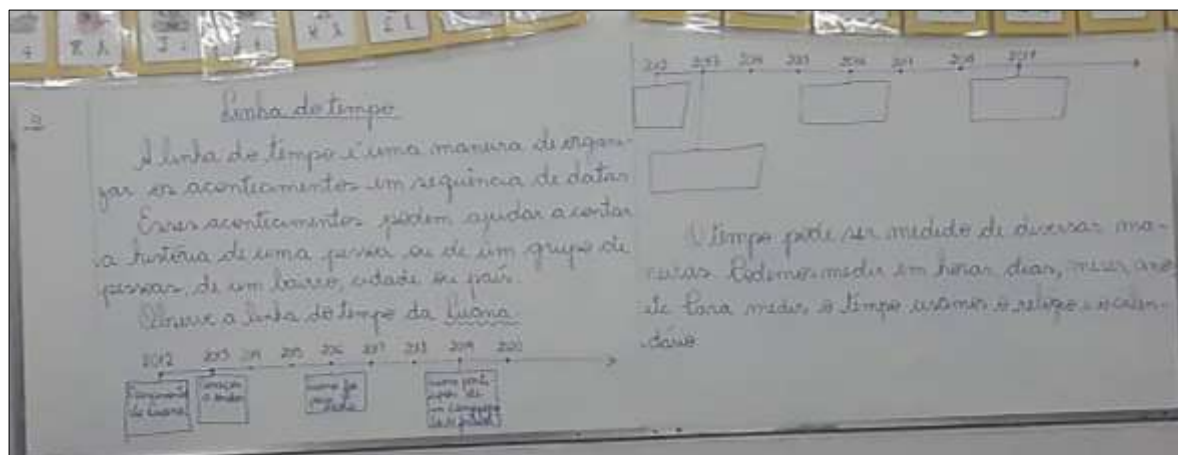 Linha do tempo
A linha do tempo é uma maneira de organi-
zar os acontecimentos em sequência de datas
Esses acontecimentos podem ajudar a contar
a história de uma pessoa ou de um grupo de
pessoas, de um bairro, cidade ou país.
Observe a linha do tempo da Luana
2012 2013 2014 2015 2016 2017 2018 2019 2020
Nascimento
de Luana
começou
a andar
2012 2013 2014 2015 2016 2017 2018 2019
O tempo pode ser medido de diversas ma-
neiras Podemos medir em horas, dias, meses, ano
etc Para medir o tempo usamos o relógio e o calen-
dário